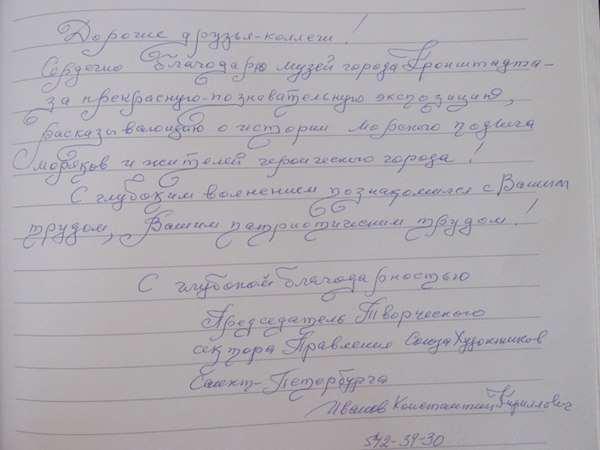 Дорогие друзья-коллеги!
Сердечно благодарю музей города Кронштадта-
за прекрасную-познавательную экспозицию,
рассказывающую о истории морского подвига
моряков и жителей героического города!
С глубоким волнением познакомился с Вашим
трудом, Вашим патриотическим трудом!
С глубокой благодарностью
Председатель Творческого
сектора Правления Союза Художников
Санкт-Петербурга
Иванов Константин Кириллович
542-39-30